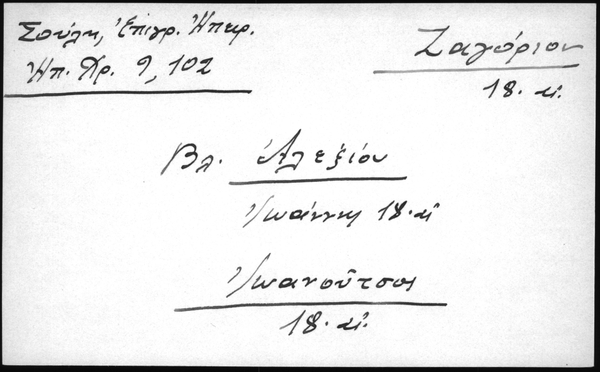 Σούλη, Ἐπιγρ. Ἠπειρ.
Ἠπ. Χρ. 9, 102
Ζαγόριον
18. αἰ.
Βλ. Ἀλεξίου
Ἰωάννη 18. αἰ
Ἰωανοῦτσος
18. αἰ.